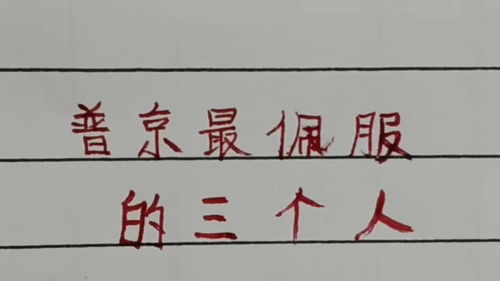 普京最佩服
的三个人